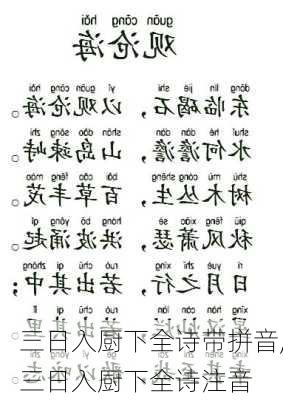 guān cāng hǎi
观沧海
dōng lín jié shí yǐ guān cāng hǎi
东临碣石，以观沧海。
shuǐ hé dàn dàn shān dǎo sǒng zhì
水何澹澹，山岛竦峙。
shù mù cóng shēng bǎi cǎo fēng mào
树木丛生，百草丰茂。
qiū fēng xiāo sè hóng bō yǒng qǐ
秋风萧瑟，洪波涌起。
rì yuè zhī xíng ruò chū qí zhōng
日月之行，若出其中；
三日入厨下全诗带拼音,
三日入厨下全诗注音